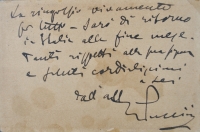 La ringrazio vivamente
per tutto - Sarò di ritorno
in Italia alla fine mese.
Tanti rispetti alla
e saluti cordialissimi
a Lei
dall'